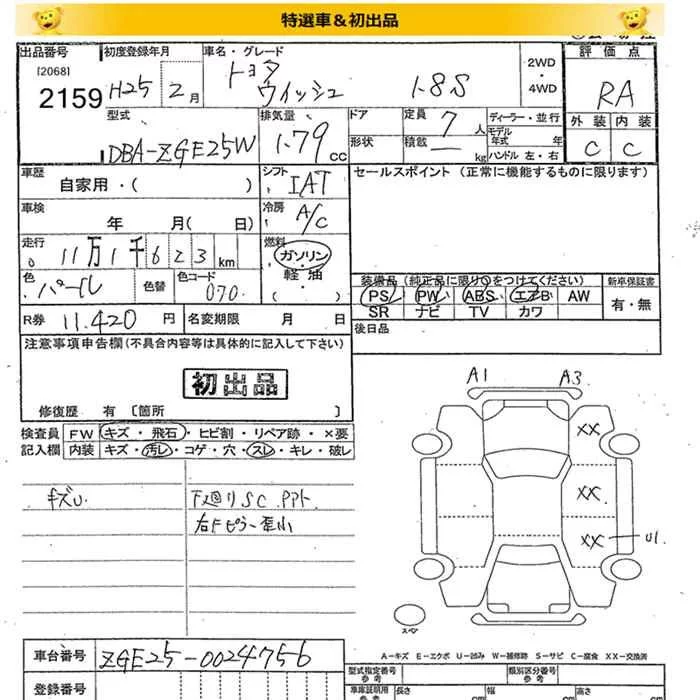 特選車＆初出品
出品番号 初度登録年月 車名・グレード 評価点
[2068]
2159 H25 2月 トヨタ ウィッシュ 1.8S 2WD・4WD RA
型式 排気量 ドア 定員 7人 ディーラー・並行 外装 内装
DBA-ZGE25W 1.79 cc 形状 積載 kg モデル年式 年 ハンドル 左・右 C C
車歴 シフト セールスポイント (正常に機能するものに限ります)
自家用・( ) IAT
車検 冷房
年 月( 日) A/C
走行 燃料
11万1千623km ガソリン・軽油
色 色替 色コード ( ) 装備品 (純正品に限り○をつけてください) 新車保証書
パール 070 PS PW ABS エアB AW 有・無
SR ナビ TV カワ
R券 11.420円 名変期限 月 日 後日品
注意事項申告欄(不具合内容等は具体的に記入して下さい)
初出品
修復歴 有 〔箇所 〕
A1 A3
検査員 FW キズ・飛石・ヒビ割・リペア跡・×要
記入欄 内装 キズ・汚レ・コゲ・穴・スレ・キレ・破レ
XX
キズU 下廻りSC PPト
右Fピラー歪小
XX
XX U1
スペア
A-キズ E-エクボ U-凹み W-補修跡 S-サビ C-腐食 XX-交換済
車台番号 ZGE25-0024756
型式指定番号 参考 類別区分番号 参考
登録番号 車庫証明用 参考 長さ 幅 高さ